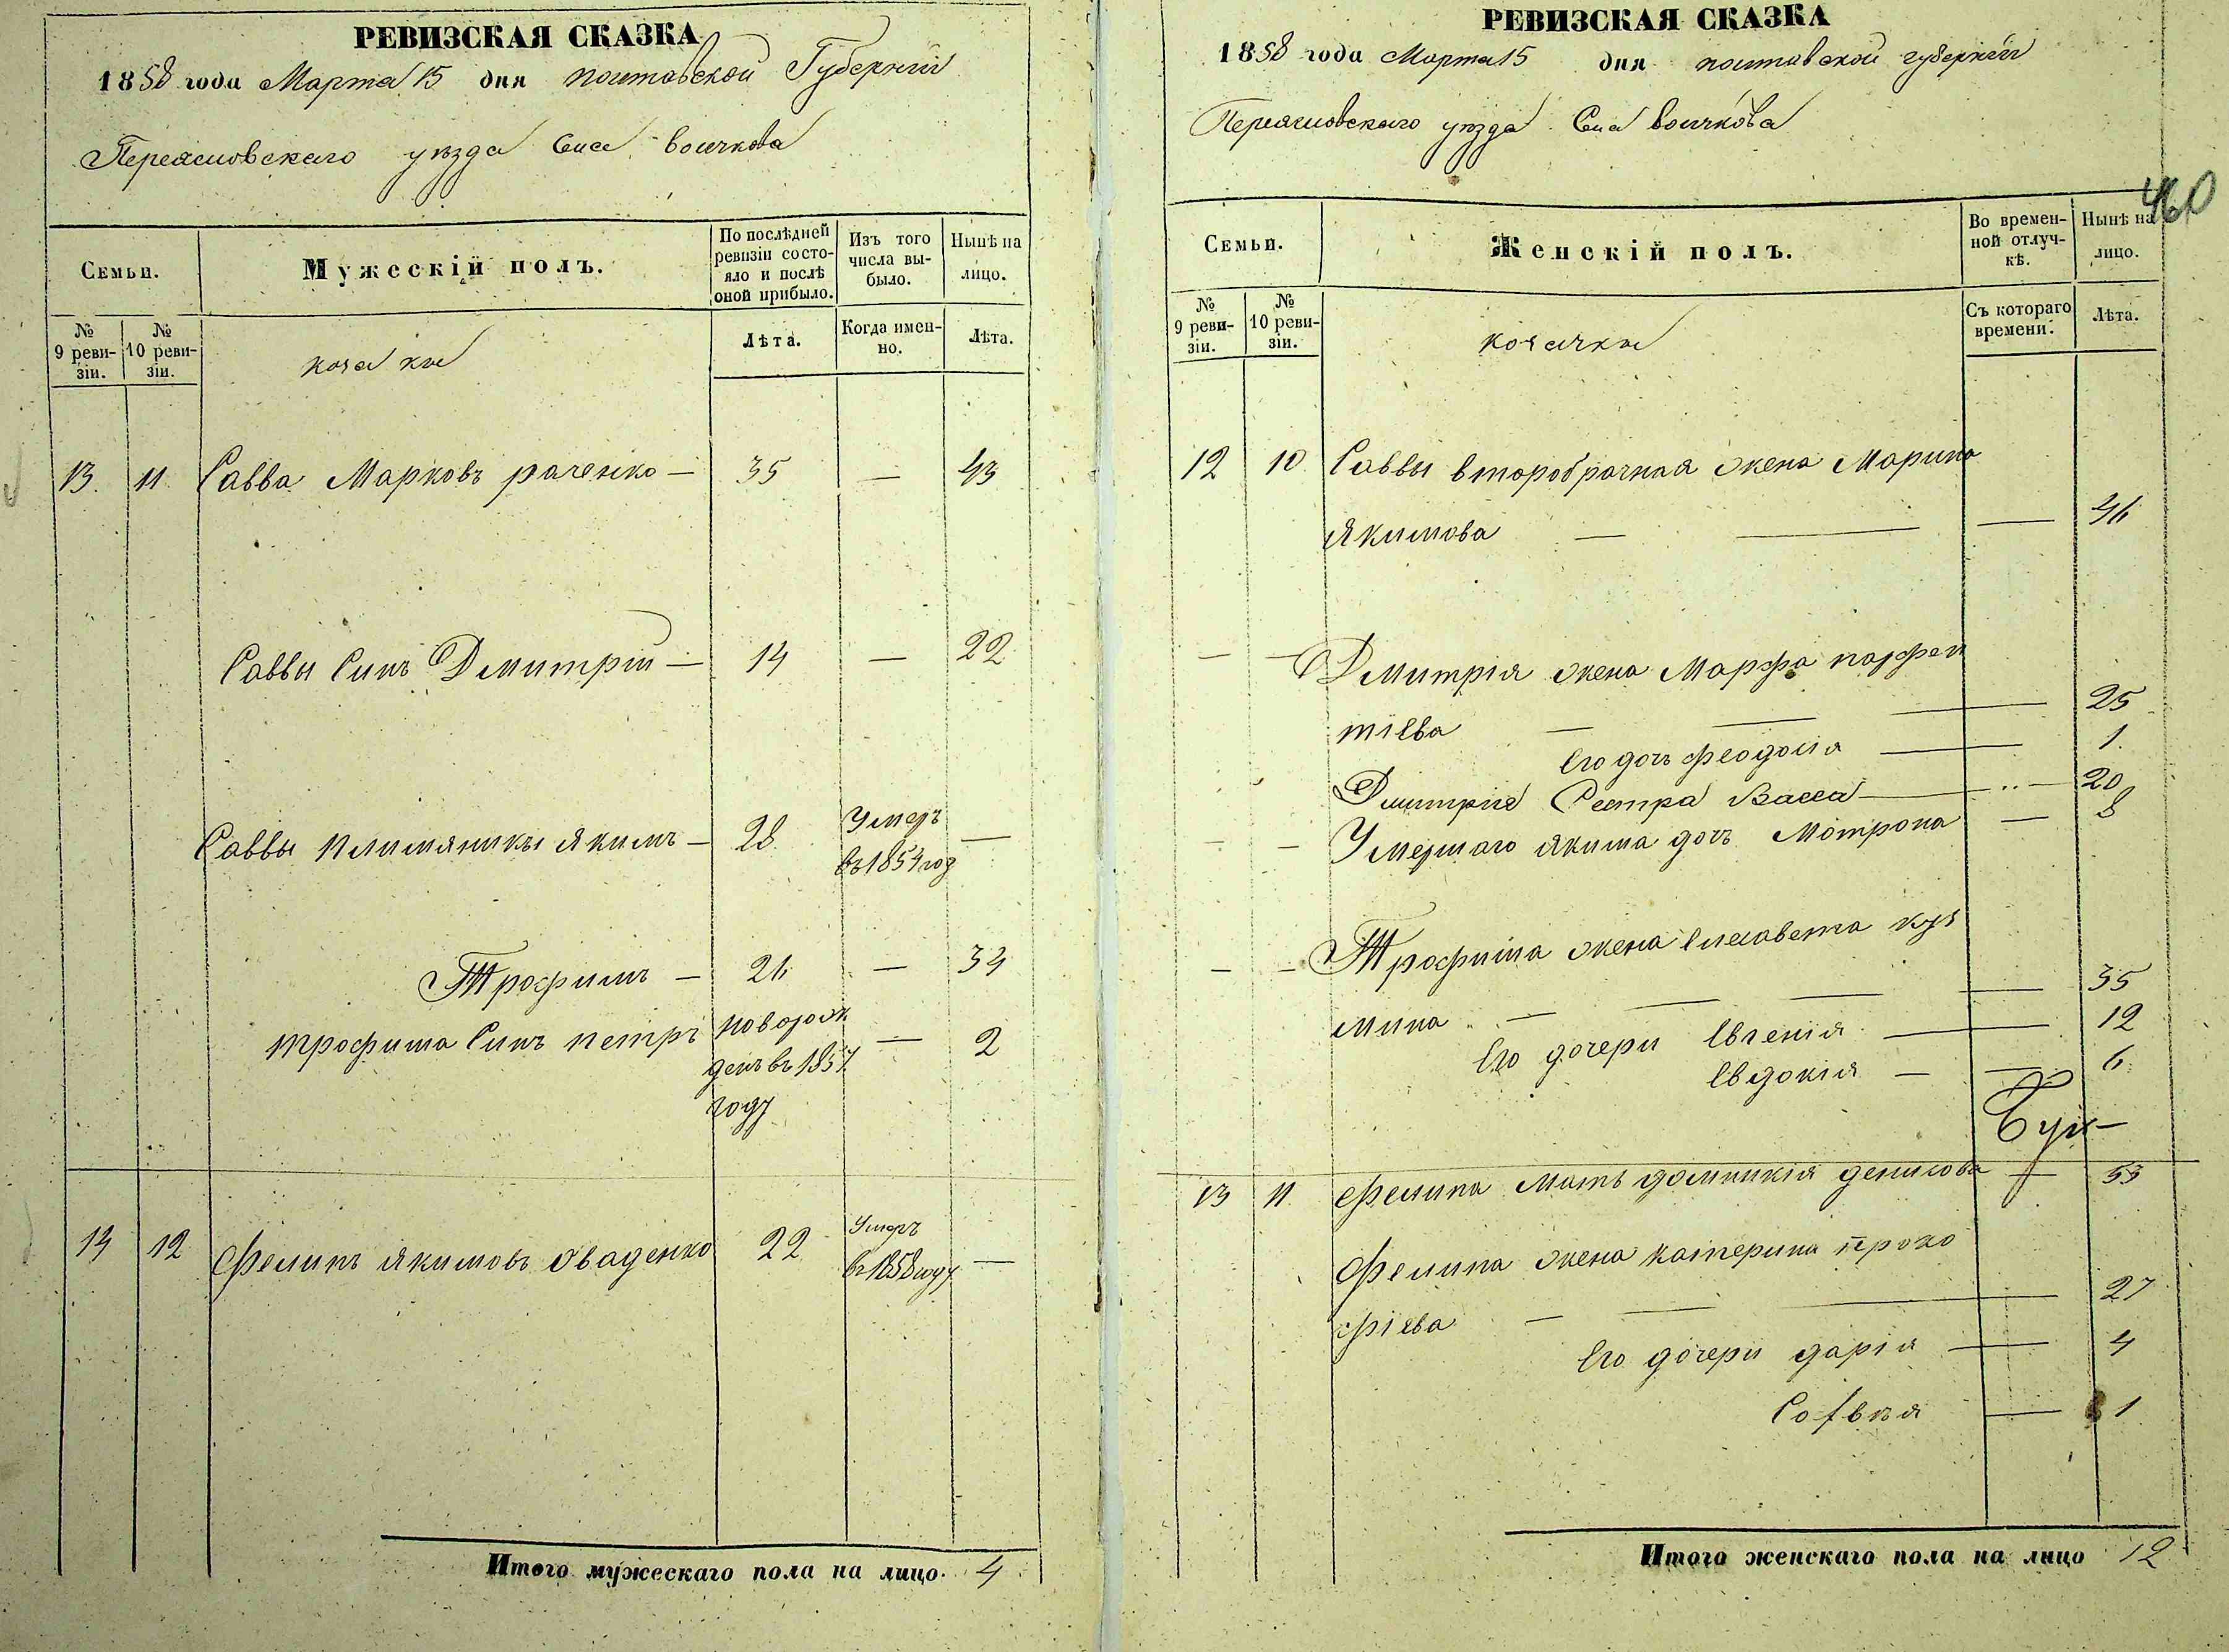 РЕВИЗСКАЯ СКАЗКА
1858 года Марта 15 дня полтавской Губерніи
Переясловскаго уѣзда Села Войчкова
Семьи.
Мужескій полъ.
По послѣдней ревизіи состояло и послѣ оной прибыло.
Изъ того числа выбыло.
Нынѣ на лицо.
№ 9 ревизіи.
№ 10 ревизіи.
козаки
Лѣта.
Когда именно.
Лѣта.
13. 11 Савва Марковъ раченко — 35 — 43
Саввы Синъ Дмитрій — 14 — 22
Саввы племяникы Якимъ — 28 Умеръ въ 1854 год —
Трофимъ — 26 — 34
трофима Синъ петръ новорож денъ въ 1857 году — 2
14 12 Фелипъ Якимовъ Оваденко 22 Умеръ въ 1858 году —
Итого мужескаго пола на лицо. 4
РЕВИЗСКАЯ СКАЗКА
1858 года Марта 15 дня полтавской губерніи
Переясловскаго уѣзда Села Войчкова
460
Семьи.
Женскій полъ.
Во временной отлучкѣ.
Нынѣ на лицо.
№ 9 ревизіи.
№ 10 ревизіи.
козачки
Съ котораго времени.
Лѣта.
12 10 Саввы второбрачная жена Марина
Якимова — — — 46
— — Дмитрія жена Марфа парфен
тіева — — — 25
Его дочь феодосія — 1.
Дмитрія Сестра Васса — 20
— — Умершаго якима дочь Мотрона — 8
— — Трофима жена елисавета кузь
мина — — — — 35
Его дочери Евгенія — 12
Евдокія — — 6
13 11 Фелипа мать домникія денисова — 53
Фелипа жена катерина проко
фіева — — — 27
Его дочери дарія — 4
Соfвѣя — 1
Итого женскаго пола на лицо 12